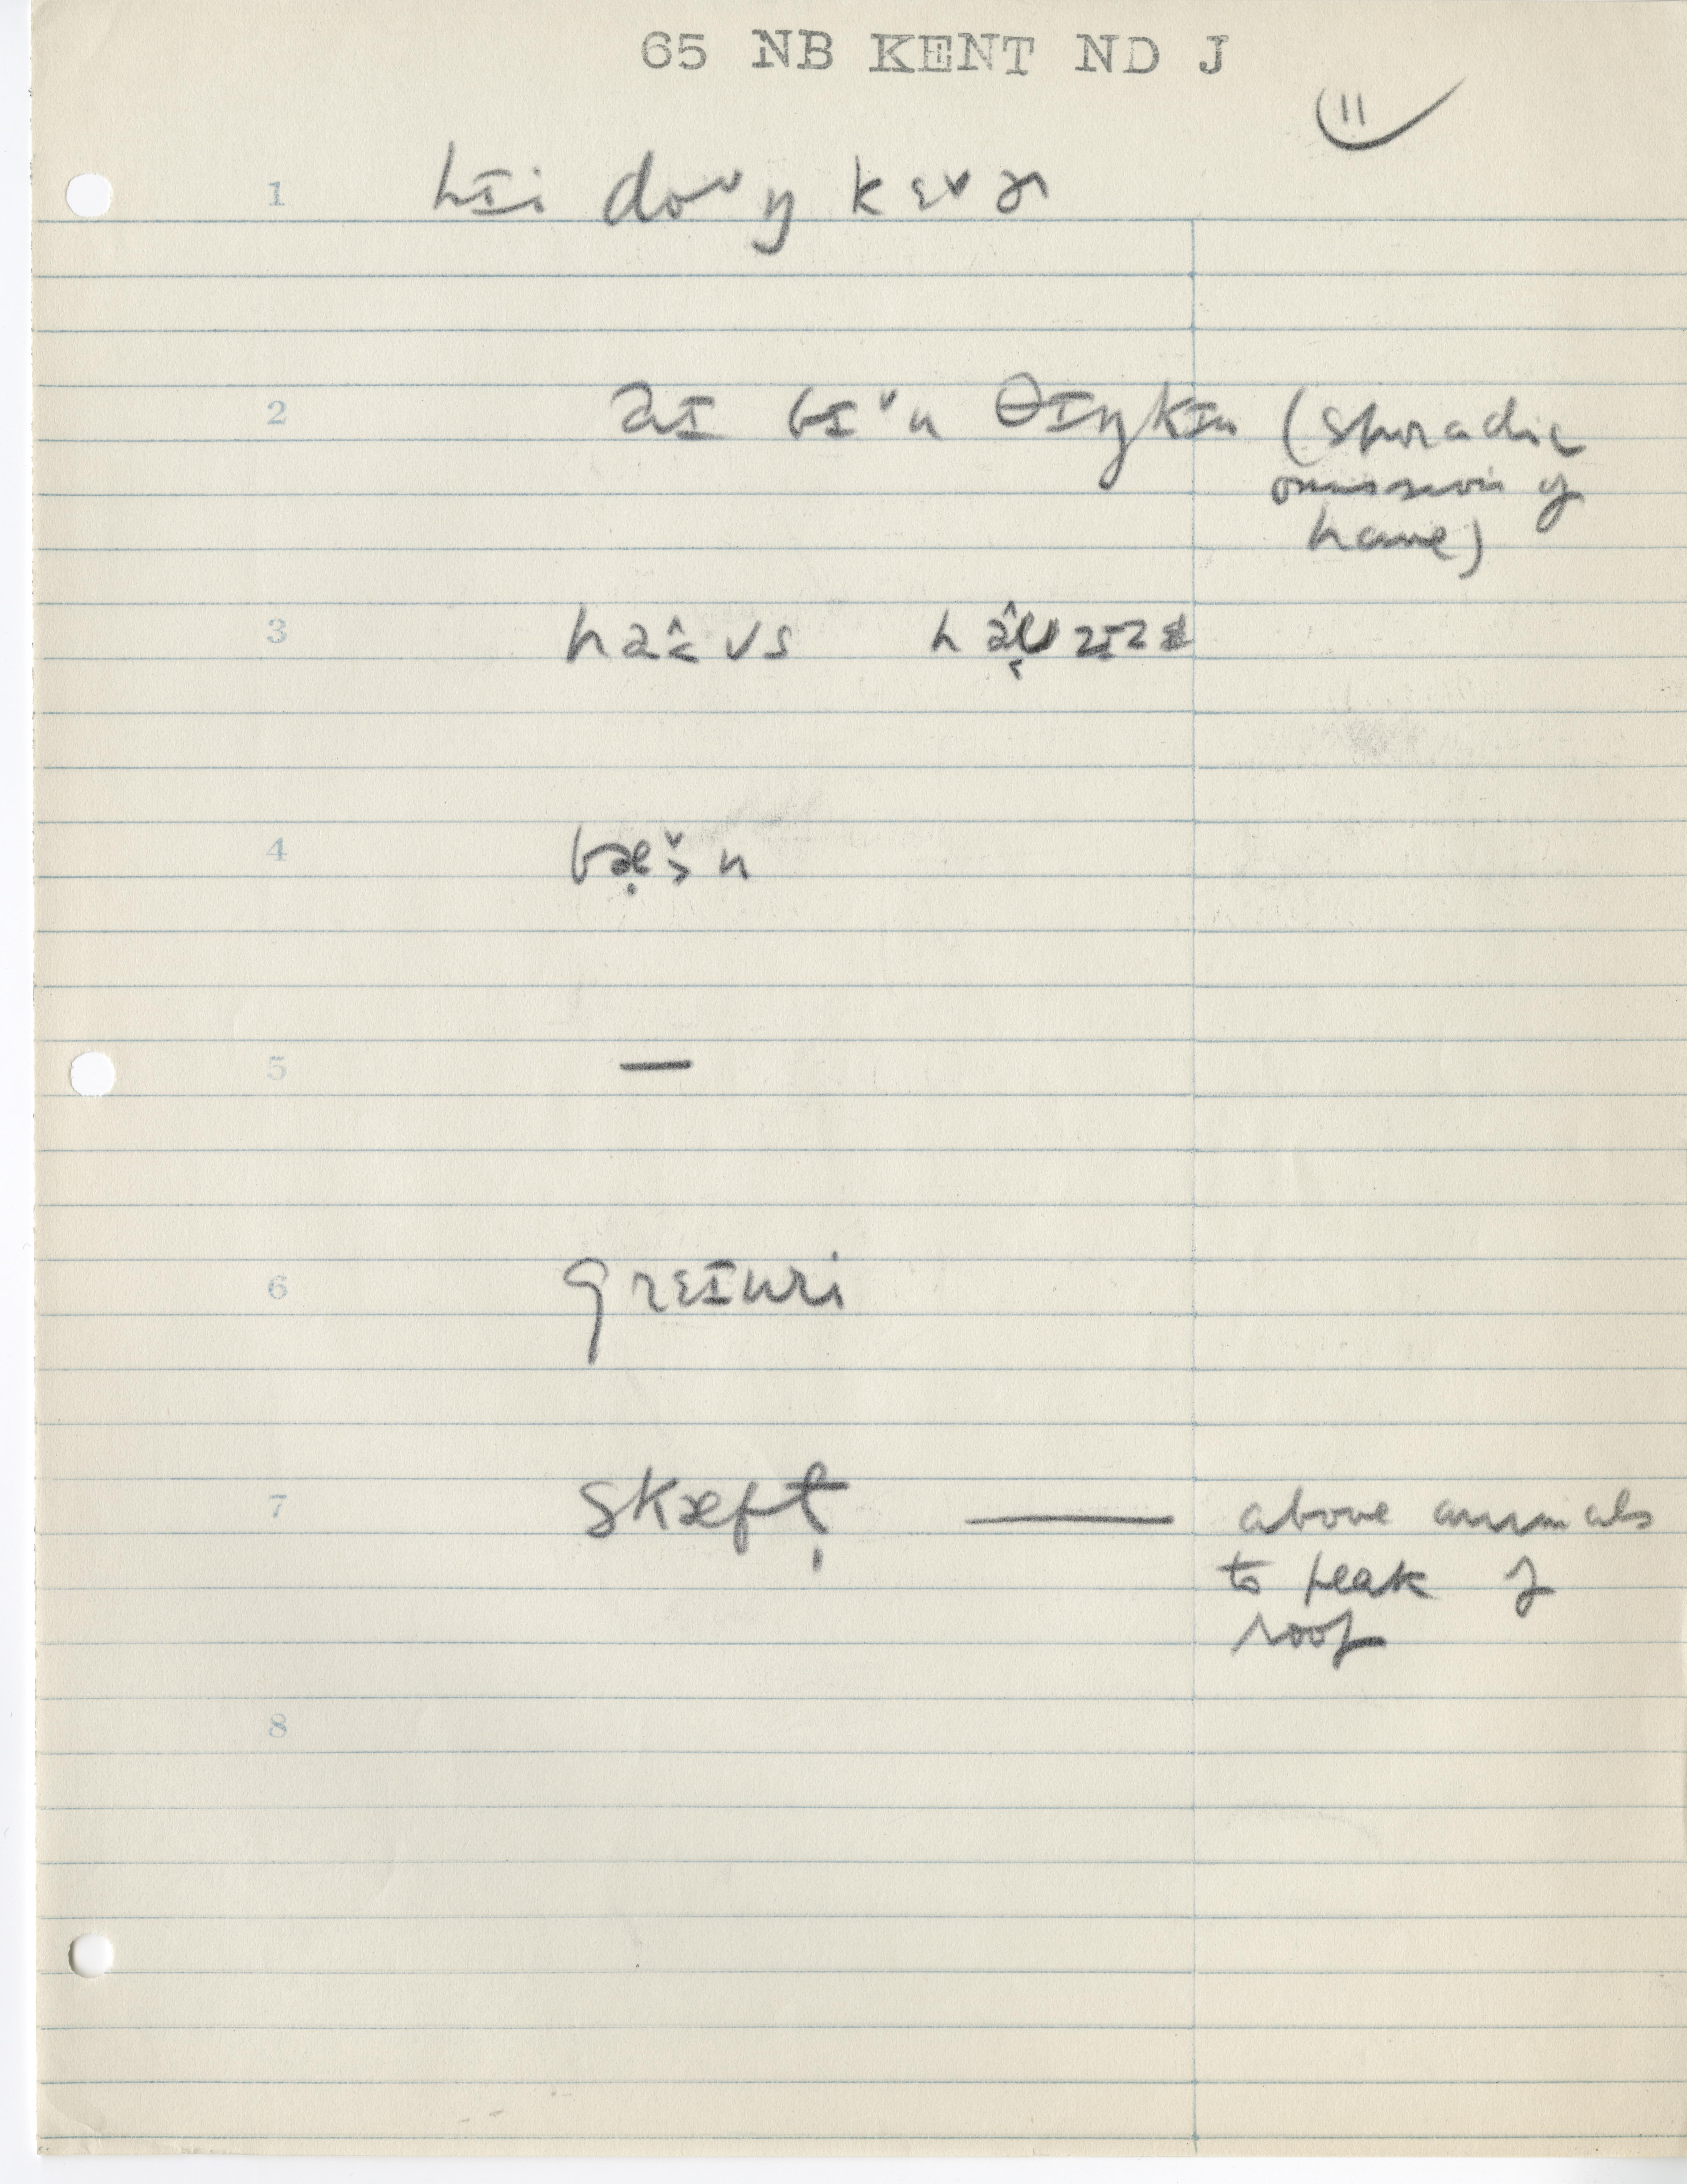 65 NB KENT ND J
11
1 hɪi doᵛŋ kɛᵛɚ
2 aɪ bɪᵛn θɪŋkɪn (sporadic
omission of
have)
3 haᵾ̂s
4 bæ̣ᵛn
5 —
6 grɛɪnri
7 skæft̩ — above animals
to peak of
roof
8